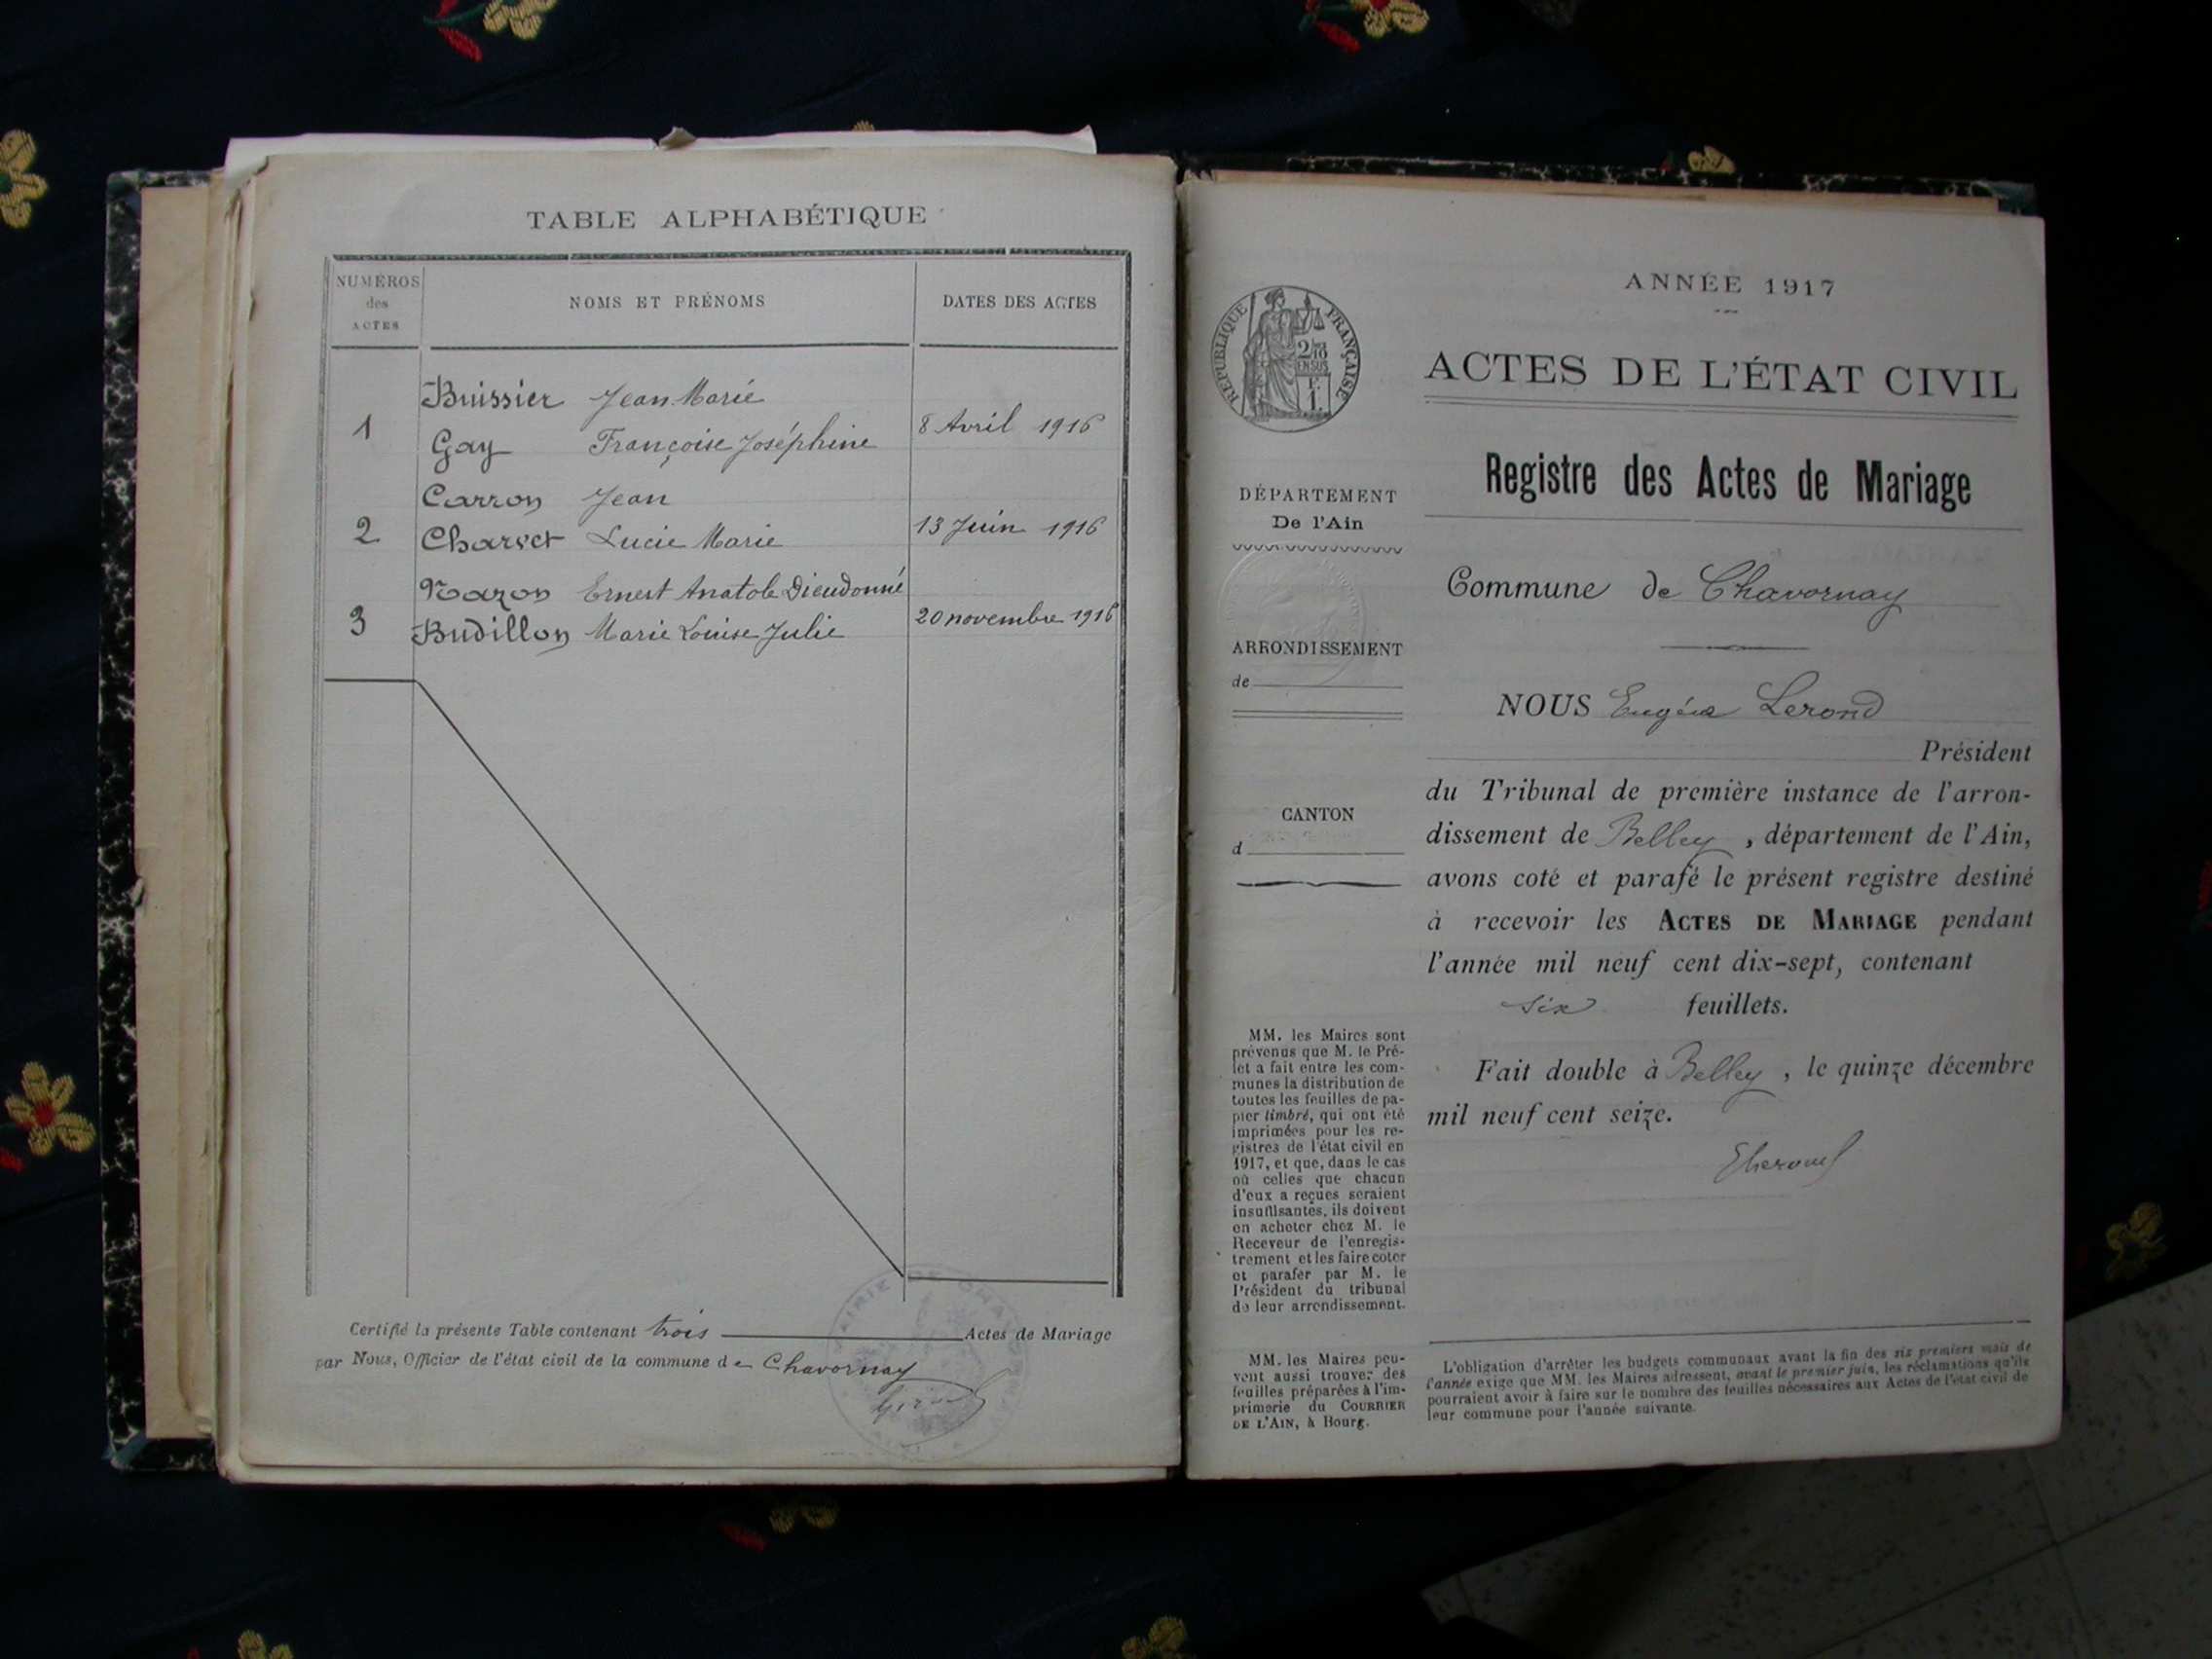 TABLE ALPHABÉTIQUE
NUMÉROS
des
ACTES
NOMS ET PRÉNOMS
DATES DES ACTES
Buissier Jean Marie
1
8 Avril 1916
Gay Françoise Joséphine
Carron Jean
2
13 Juin 1916
Charvet Lucie Marie
Ernest Anatole Dieudonné
3
20 novembre 1916
Budillon Marie Louise Julie
Certifié la présente Table contenant trois Actes de Mariage
par Nous, Officier de l'état civil de la commune de Chavornay
ANNÉE 1917
RÉPUBLIQUE FRANÇAISE
2/10
EN SUS
1 F.
ACTES DE L'ÉTAT CIVIL
Registre des Actes de Mariage
DÉPARTEMENT
De l'Ain
Commune de Chavornay
ARRONDISSEMENT
de
NOUS Eugène Lerond
Président
du Tribunal de première instance de l'arron-
dissement de Belley, département de l'Ain,
avons coté et parafé le présent registre destiné
à recevoir les ACTES DE MARIAGE pendant
l'année mil neuf cent dix-sept, contenant
six feuillets.
Fait double à Belley, le quinze décembre
mil neuf cent seize.
CANTON
d
MM. les Maires sont
prévenus que M. le Pré-
fet a fait entre les com-
munes la distribution de
toutes les feuilles de pa-
pier timbré, qui ont été
imprimées pour les re-
gistres de l'état civil en
1917, et que, dans le cas
où celles que chacun
d'eux a reçues seraient
insuffisantes, ils doivent
en acheter chez M. le
Receveur de l'enregis-
trement et les faire coter
et parafer par M. le
Président du tribunal
de leur arrondissement.
MM. les Maires peu-
vent aussi trouver des
feuilles préparées à l'im-
primerie du COURRIER
DE L'AIN, à Bourg.
L'obligation d'arrêter les budgets communaux avant la fin des six premiers mois de
l'année exige que MM. les Maires adressent, avant le premier juin, les réclamations qu'ils
pourraient avoir à faire sur le nombre des feuilles nécessaires aux Actes de l'état civil de
leur commune pour l'année suivante.